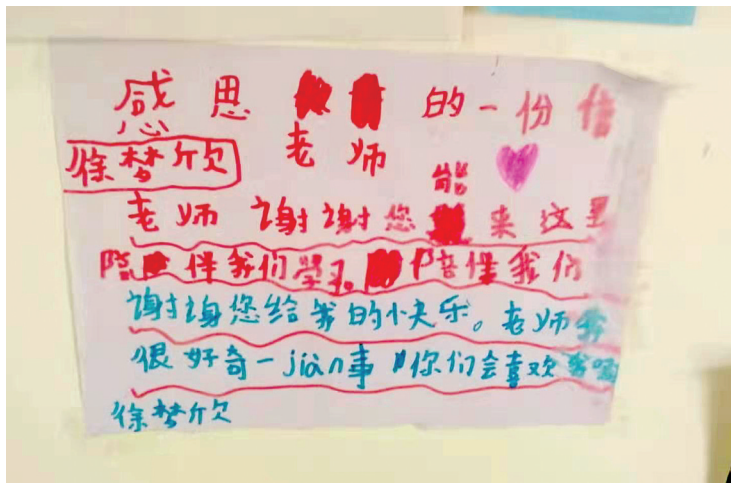 感恩的一份信
老师
徐梦欣
老师谢谢您能来这里
陪伴我们学习。陪伴我们
谢谢您给我的快乐。老师我
很好奇一jiàn事你们会喜欢我吗
徐梦欣